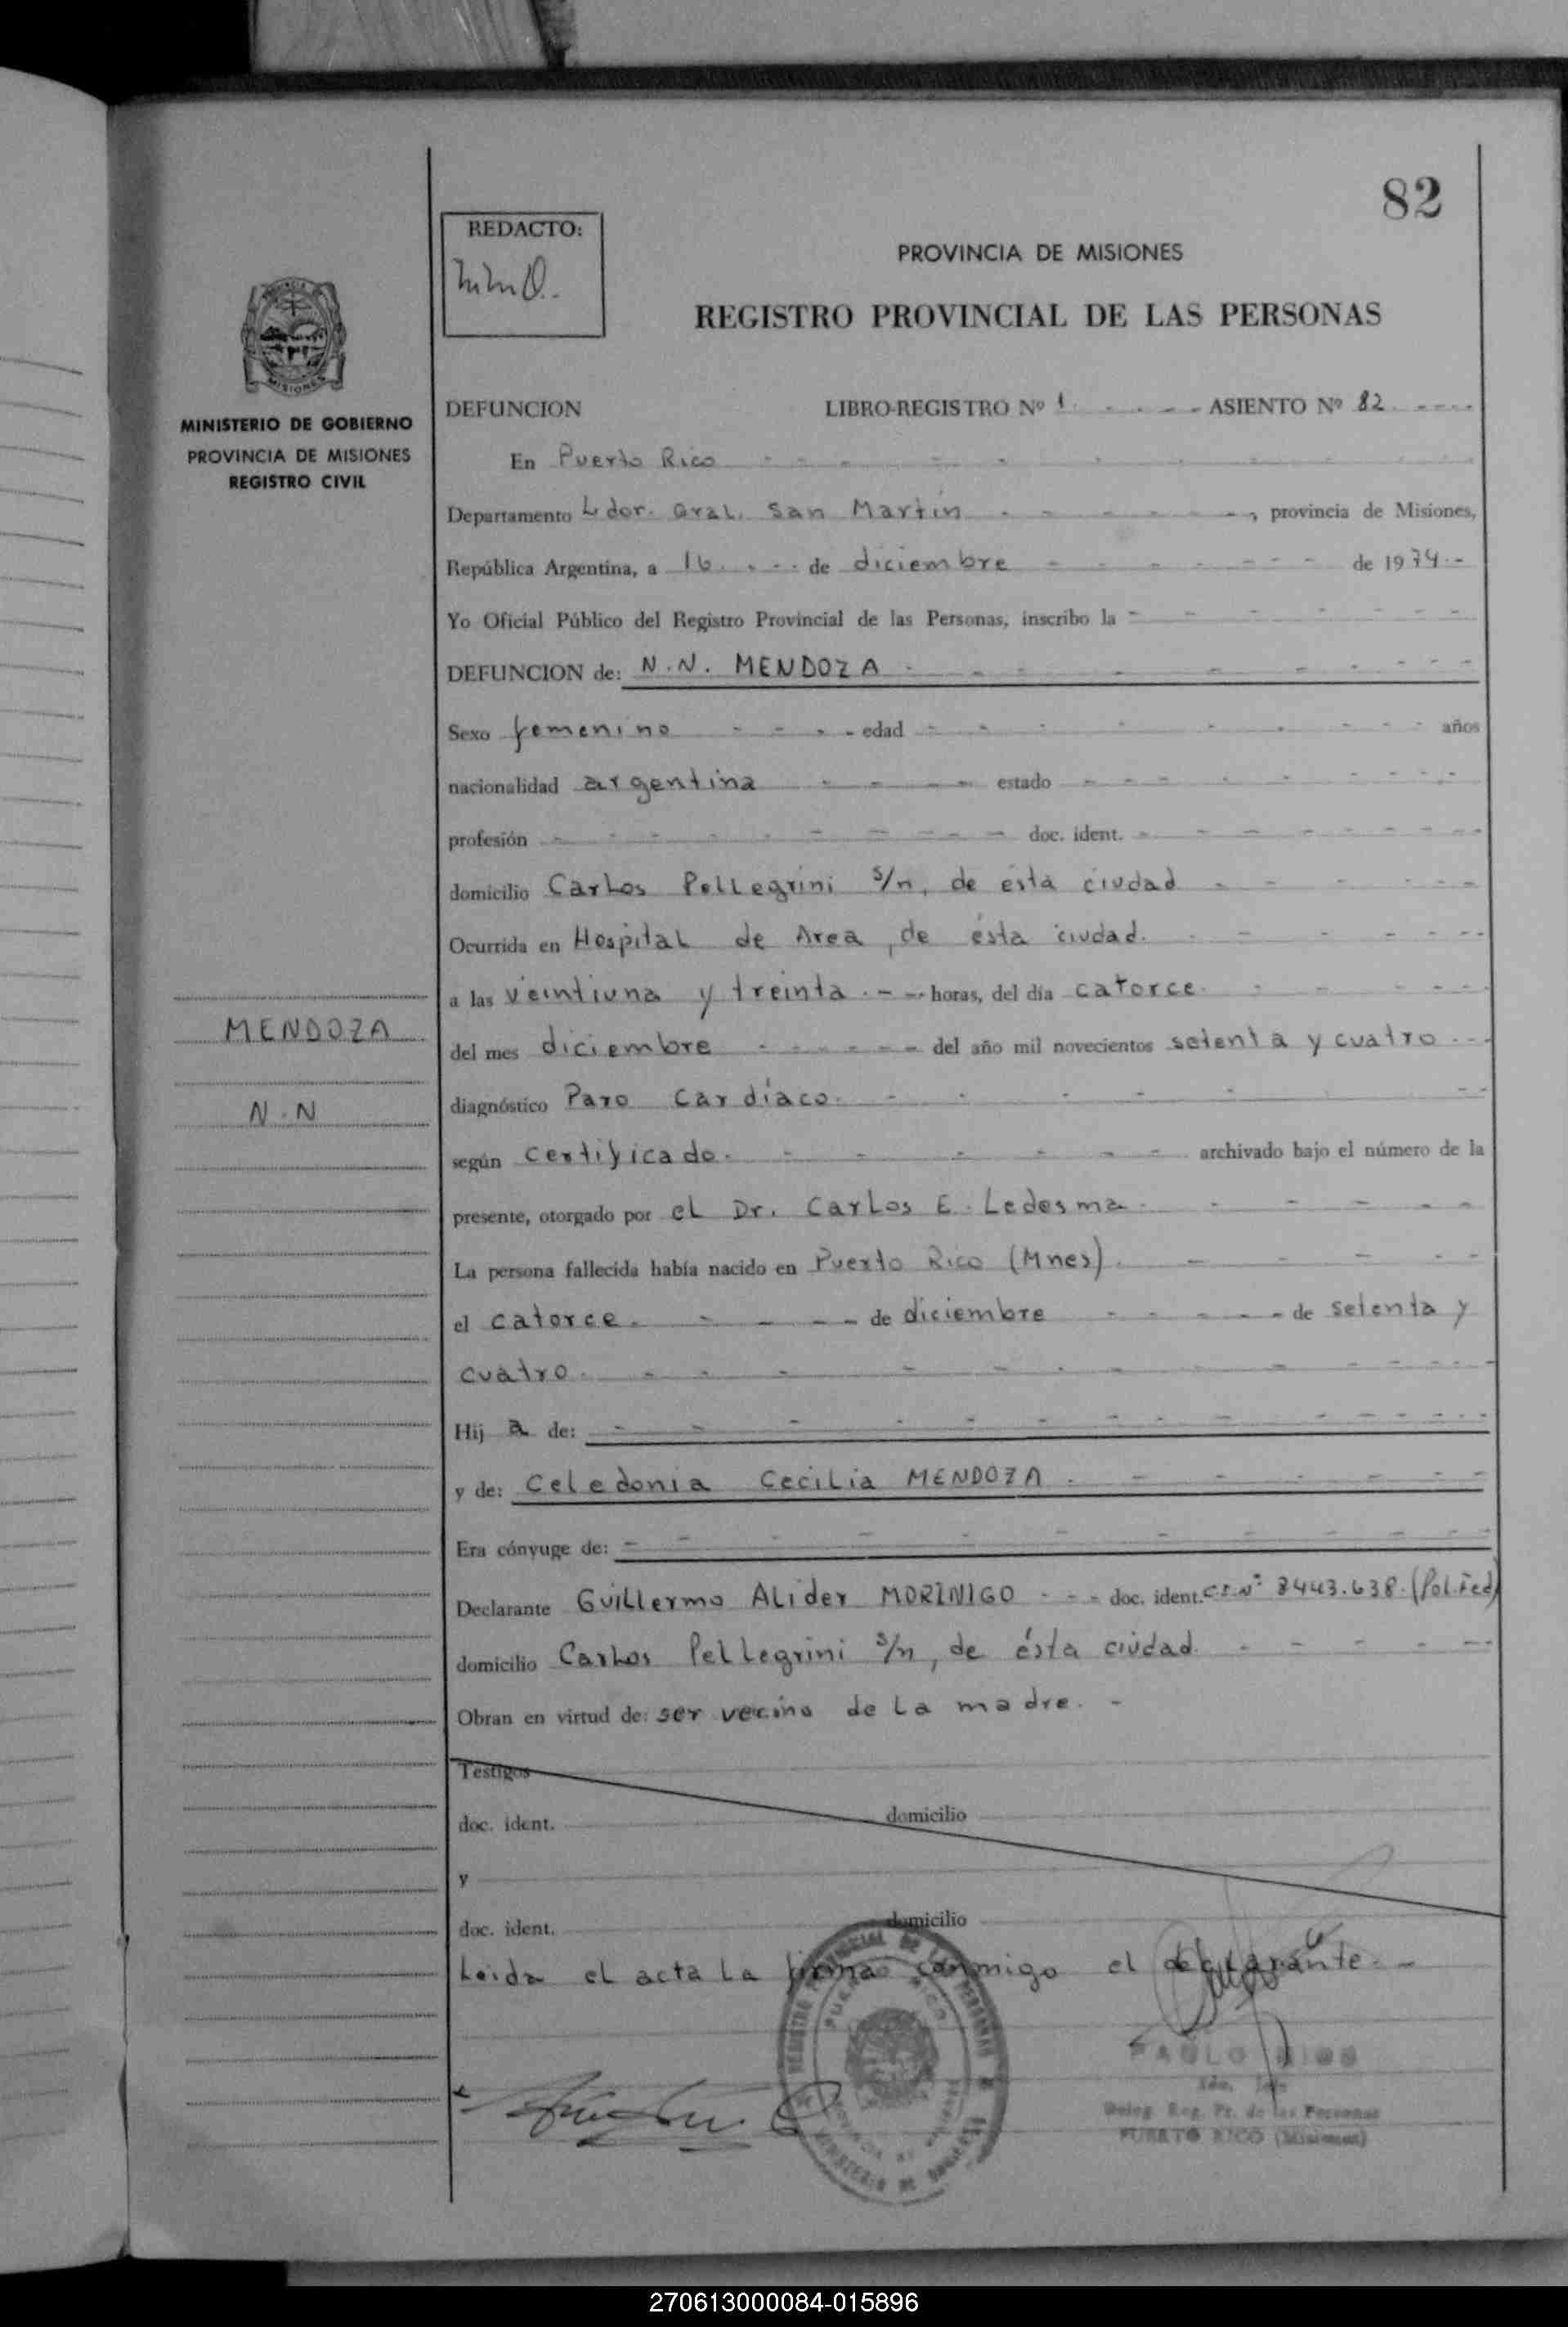 82
REDACTO:
PROVINCIA DE MISIONES
REGISTRO PROVINCIAL DE LAS PERSONAS
MISIONES
MINISTERIO DE GOBIERNO
PROVINCIA DE MISIONES
REGISTRO CIVIL
DEFUNCION LIBRO-REGISTRO Nº 1 - - - - ASIENTO Nº 82 - - - -
En Puerto Rico - - - - - - - - -
Departamento L dor. Gral. San Martín - - - - - - -, provincia de Misiones,
República Argentina, a 16 - - - de diciembre - - - - - - - de 1974.-
Yo Oficial Público del Registro Provincial de las Personas, inscribo la - - - - - - -
DEFUNCION de: N.N. MENDOZA - - - - - - - -
Sexo femenino - - - - edad - - - - - - - - - años
nacionalidad argentina - - - - estado - - - - - - - - -
profesión - - - - - - - - - doc. ident. - - - - - - - -
domicilio Carlos Pellegrini s/n, de ésta ciudad - - - - - -
Ocurrida en Hospital de Area, de ésta ciudad. - - - - - -
a las veintiuna y treinta. - - horas, del día catorce. - - - - -
MENDOZA
del mes diciembre - - - - - - del año mil novecientos setenta y cuatro - - -
N.N
diagnóstico Paro Cardíaco. - - - - - - -
según Certificado. - - - - - - archivado bajo el número de la
presente, otorgado por el Dr. Carlos E. Ledesma - - - - - -
La persona fallecida había nacido en Puerto Rico (Mnes). - - - - -
el catorce. - - - - de diciembre - - - - - de setenta y
cuatro. - - - - - - - - - - -
Hij a de: - - - - - - - - - - - -
y de: Celedonia Cecilia MENDOZA. - - - - - -
Era cónyuge de: - - - - - - - - - -
Declarante Guillermo Alider MORINIGO - - - doc. ident. C.I. Nº 8443.638.(Pol.Fed)
domicilio Carlos Pellegrini s/n, de ésta ciudad. - - - - -
Obran en virtud de: ser vecino de la madre. -
Testigos
doc. ident. domicilio
y
doc. ident. domicilio
Leida el acta la firma conmigo el declarante. -
Deleg. Reg. Pr. de las Personas
PUERTO RICO (Misiones)
270613000084-015896